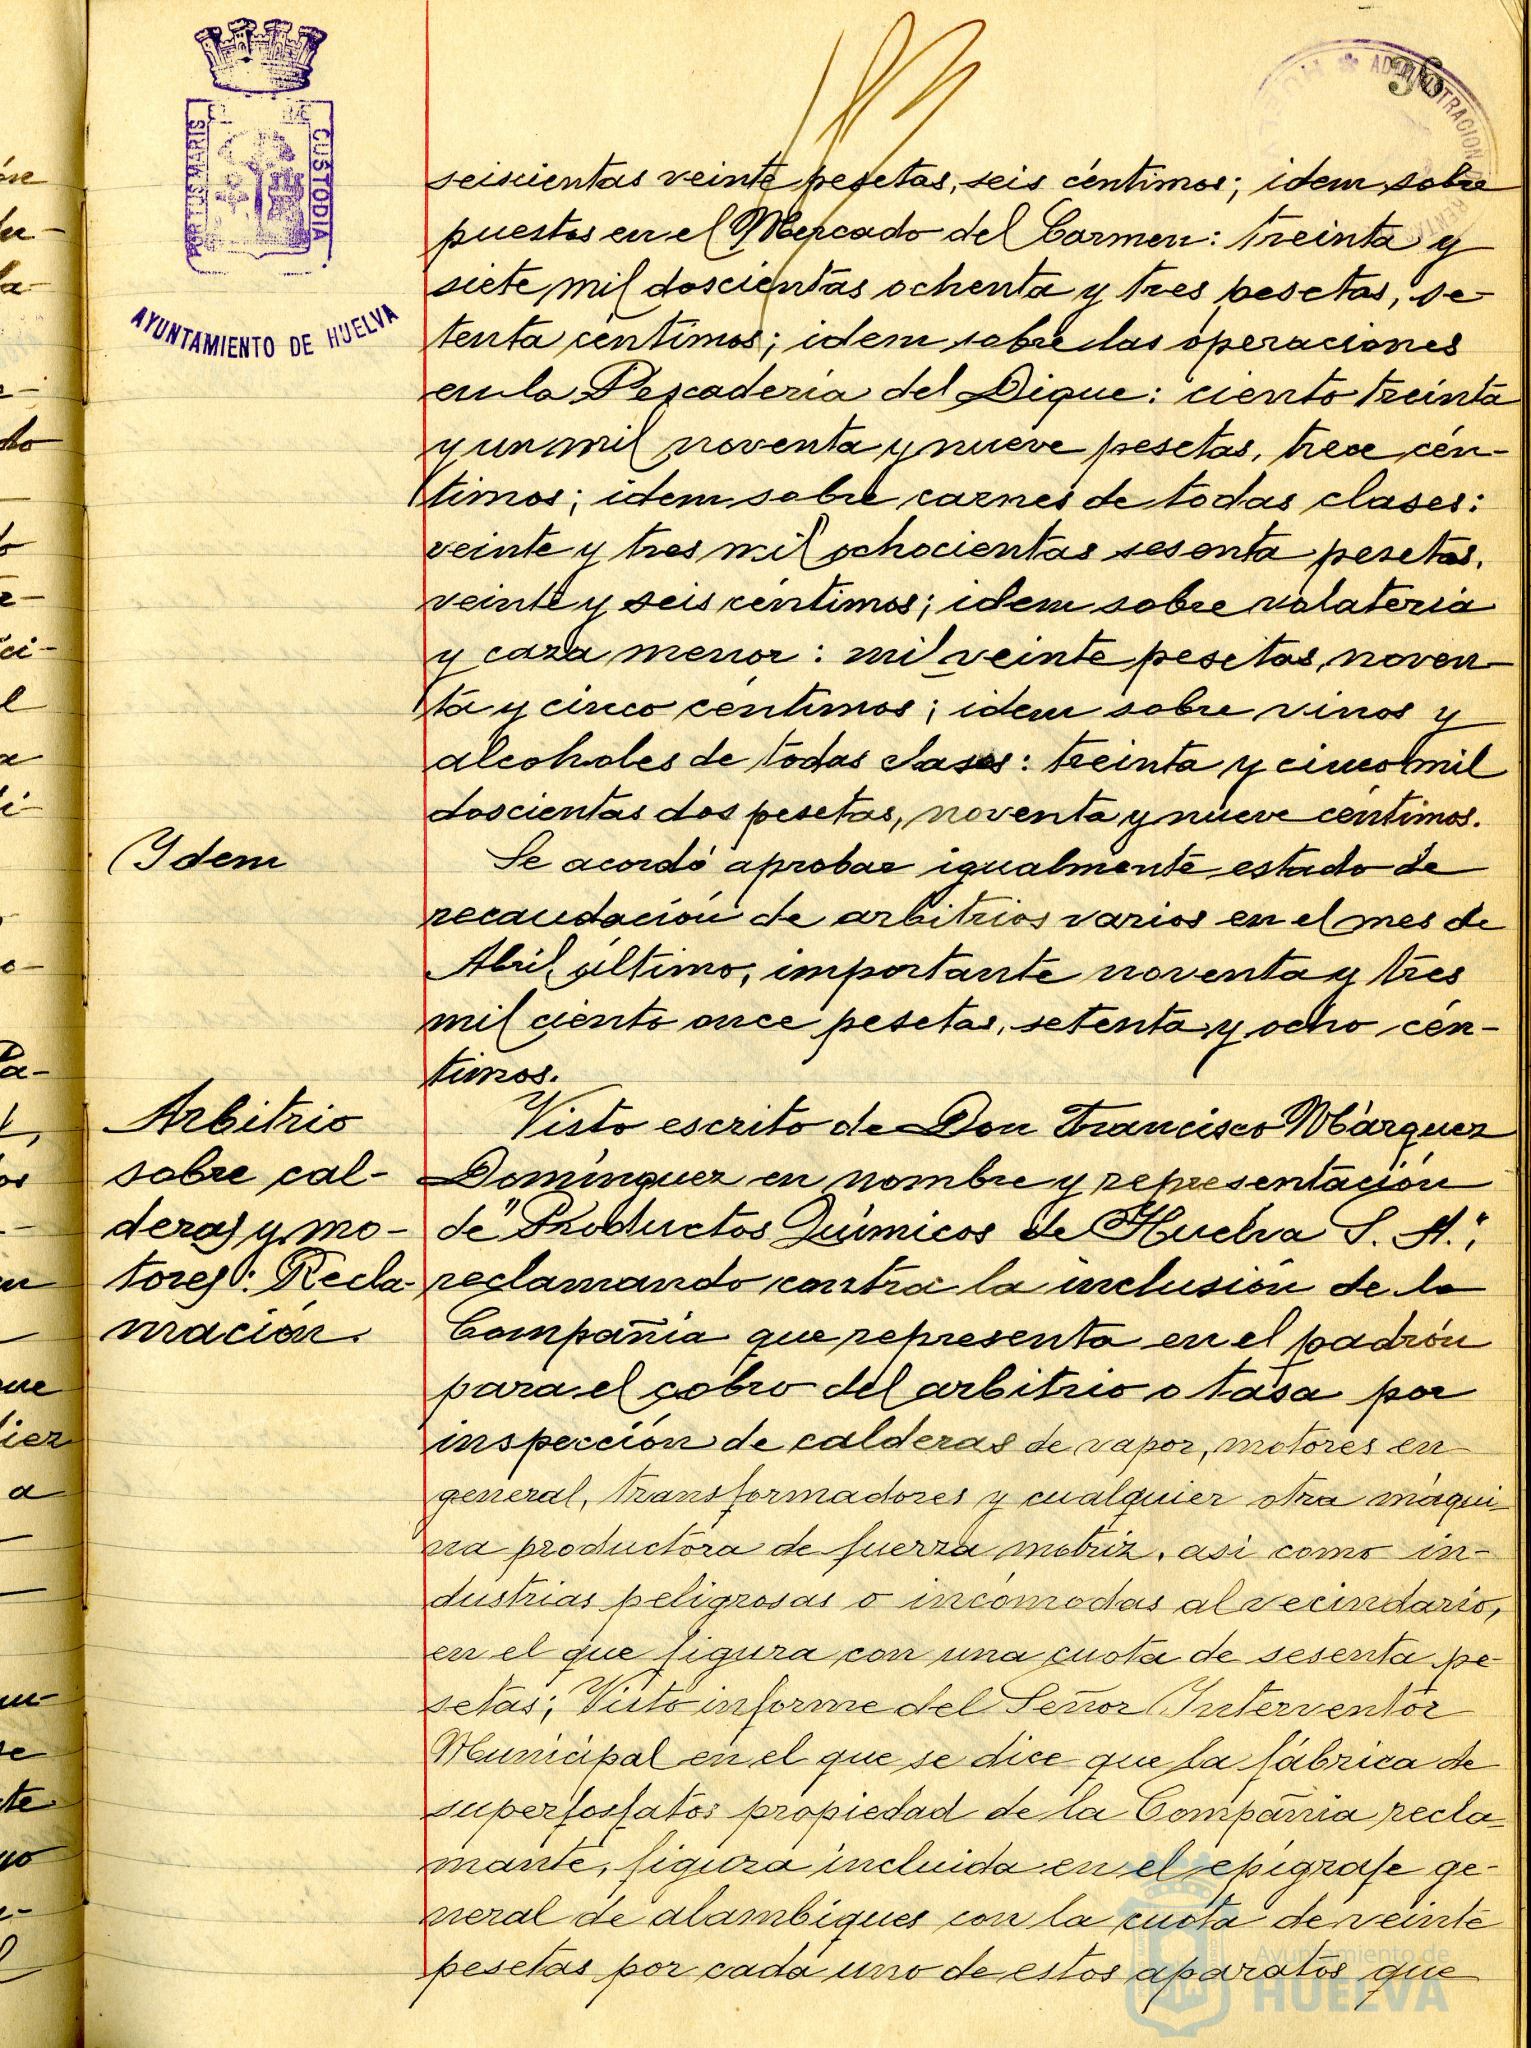 36
PORTUS MARIS
CUSTODIA
AYUNTAMIENTO DE HUELVA
ADMINISTRACION
seiscientas veinte pesetas, seis céntimos; idem sobre
puestos en el Mercado del Carmen: treinta y
siete mil doscientas ochenta y tres pesetas, se-
tenta céntimos; idem sobre las operaciones
en la Pescadería del Dique: ciento treinta
y un mil noventa y nueve pesetas, trece cén-
timos; idem sobre carnes de todas clases:
veinte y tres mil ochocientas sesenta pesetas,
veinte y seis céntimos; idem sobre volatería
y caza menor: mil veinte pesetas, noven-
ta y cinco céntimos; idem sobre vinos y
alcoholes de todas clases: treinta y cinco mil
doscientas dos pesetas, noventa y nueve céntimos.
Idem
Se acordó aprobar igualmente estado de
recaudación de arbitrios varios en el mes de
Abril último, importante noventa y tres
mil ciento once pesetas, setenta y ocho cén-
timos.
Arbitrio
sobre cal-
deras y mo-
tores: Recla-
mación.
Visto escrito de Don Francisco Márquez
Domínguez en nombre y representación
de "Productos Químicos de Huelva S. A.",
reclamando contra la inclusión de la
Compañía que representa en el padrón
para el cobro del arbitrio o tasa por
inspección de calderas de vapor, motores en
general, transformadores y cualquier otra máqui-
na productora de fuerza motriz, asi como in-
dustrias peligrosas o incómodas al vecindario,
en el que figura con una cuota de sesenta pe-
setas; Visto informe del Señor Interventor
Municipal en el que se dice que la fábrica de
superfosfatos propiedad de la Compañía recla-
mante, figura incluida en el epígrafe ge-
neral de alambiques con la cuota de veinte
pesetas por cada uno de estos aparatos que
Ayuntamiento de
HUELVA